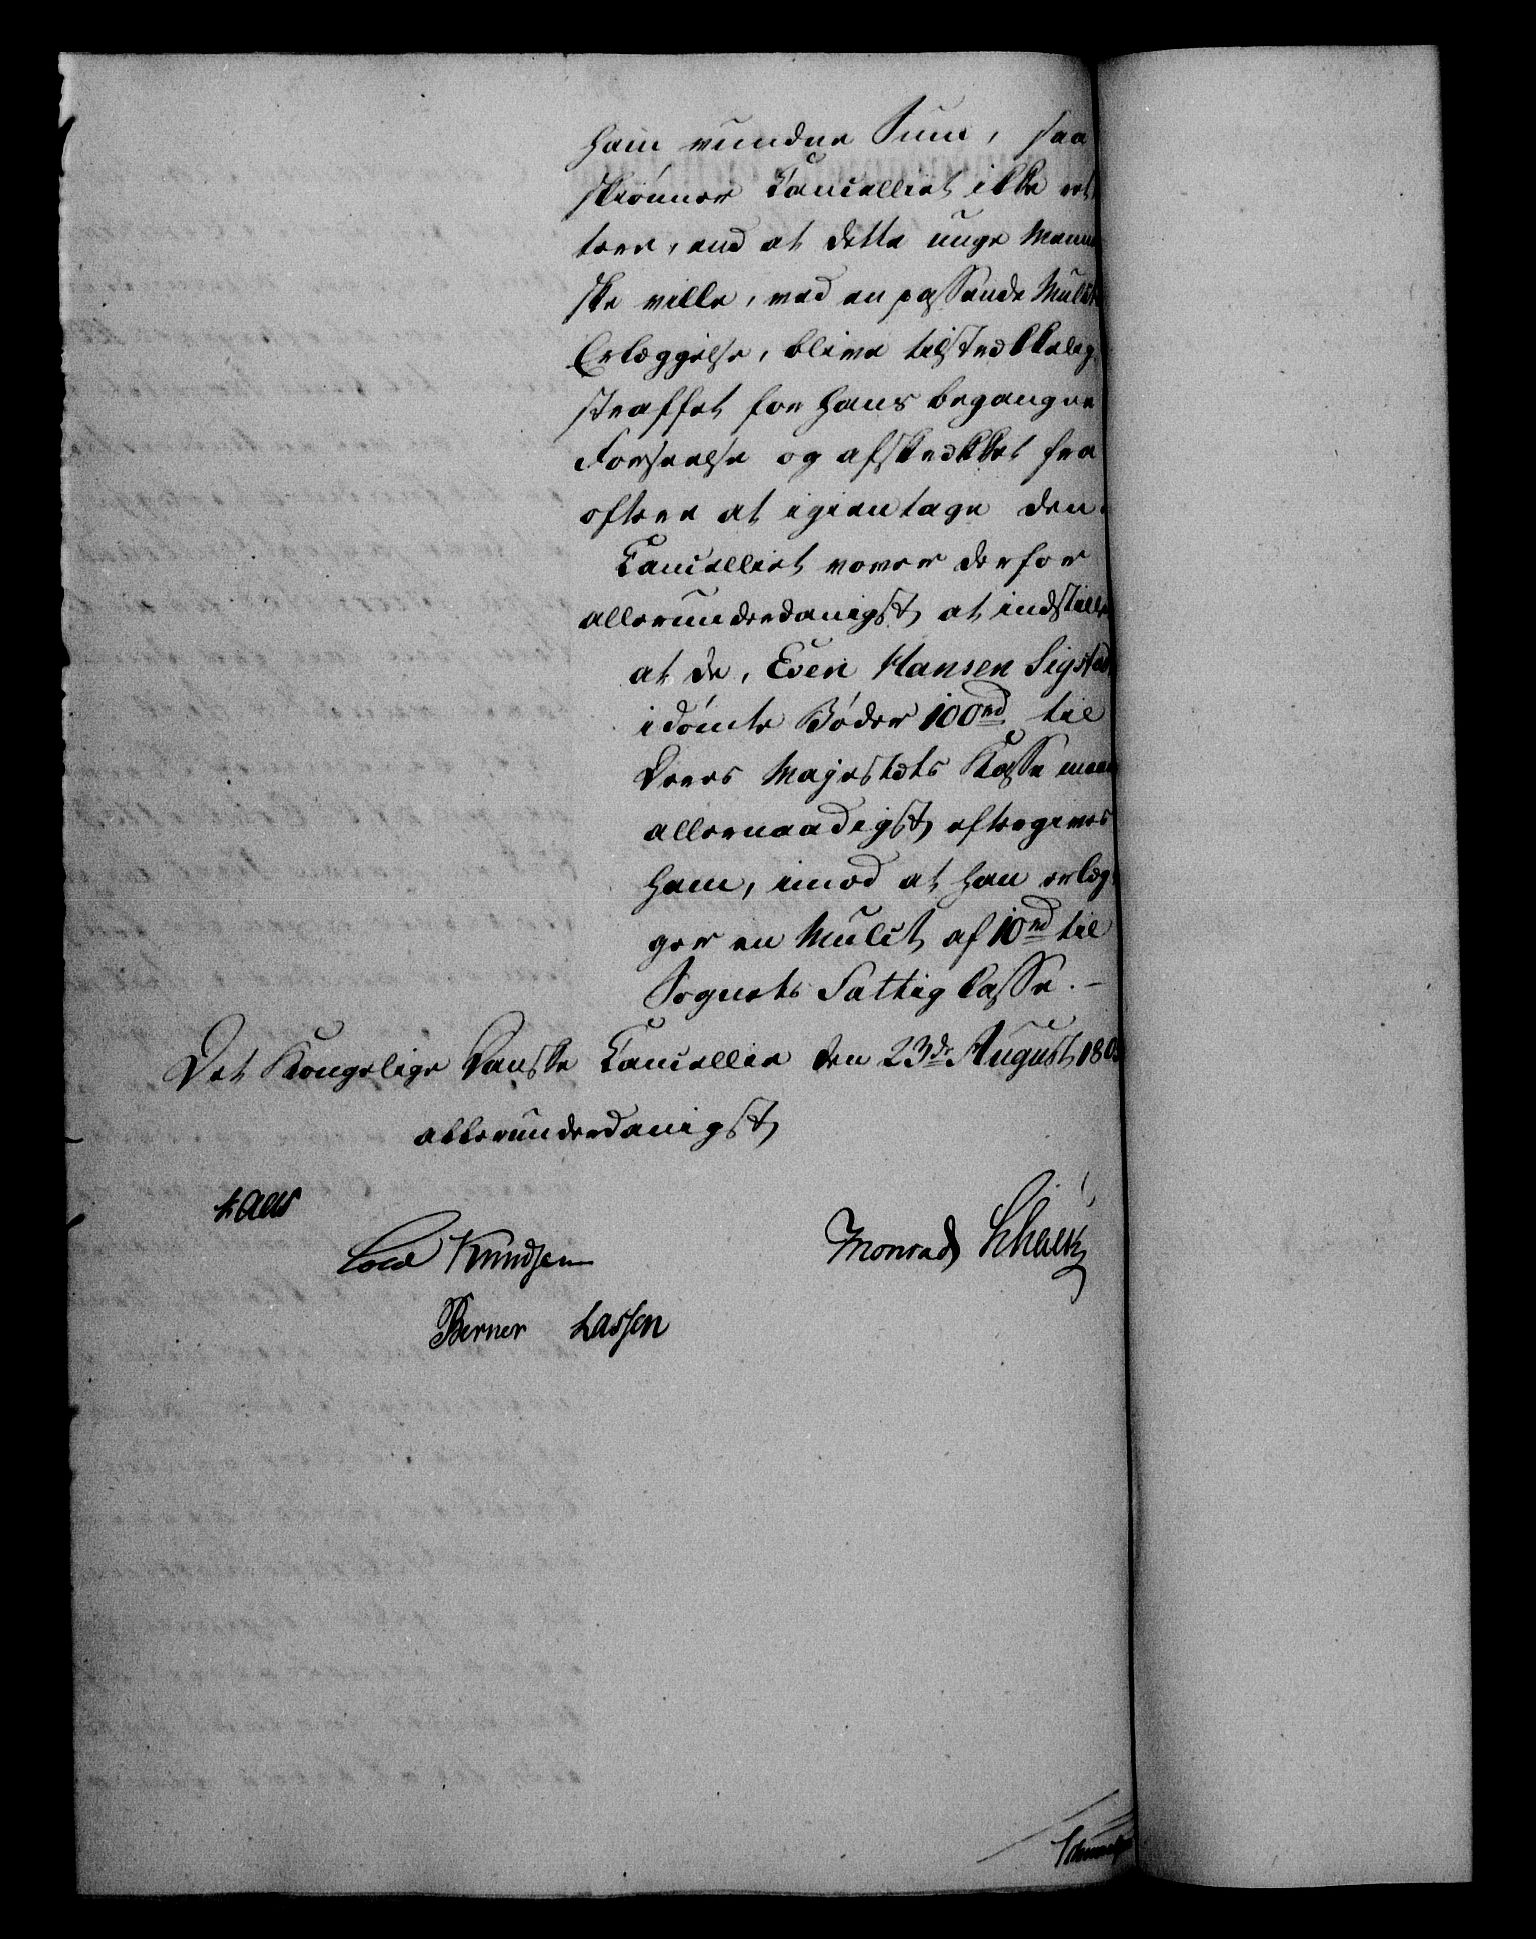 ham vundne Sum, saa
skiønner Cancelliet ikke ret-
tere, end at dette unge Menne
ske ville, ved en passende Mulct
Erlæggelse, blive tilstrækkelig
straffet for hans begangne
Forseelse og afskrækket fra
oftere at igientage den.
Cancelliet vover derfor
allerunderdanigst at indstille
at de, Even Hansen Sigstad
idømte Bøder 100 rd til
Deres Majestæts Kasse maae
allernaadigst eftergives
ham, imod at han erlæg-
ger en Mulct af 10 rd til
Sognets Fattig Casse. -
Det Kongelige Danske Cancellie den 23de August 180
allerunderdanigst
Kaas
Cold Knudsen Monrad
Berner Lassen